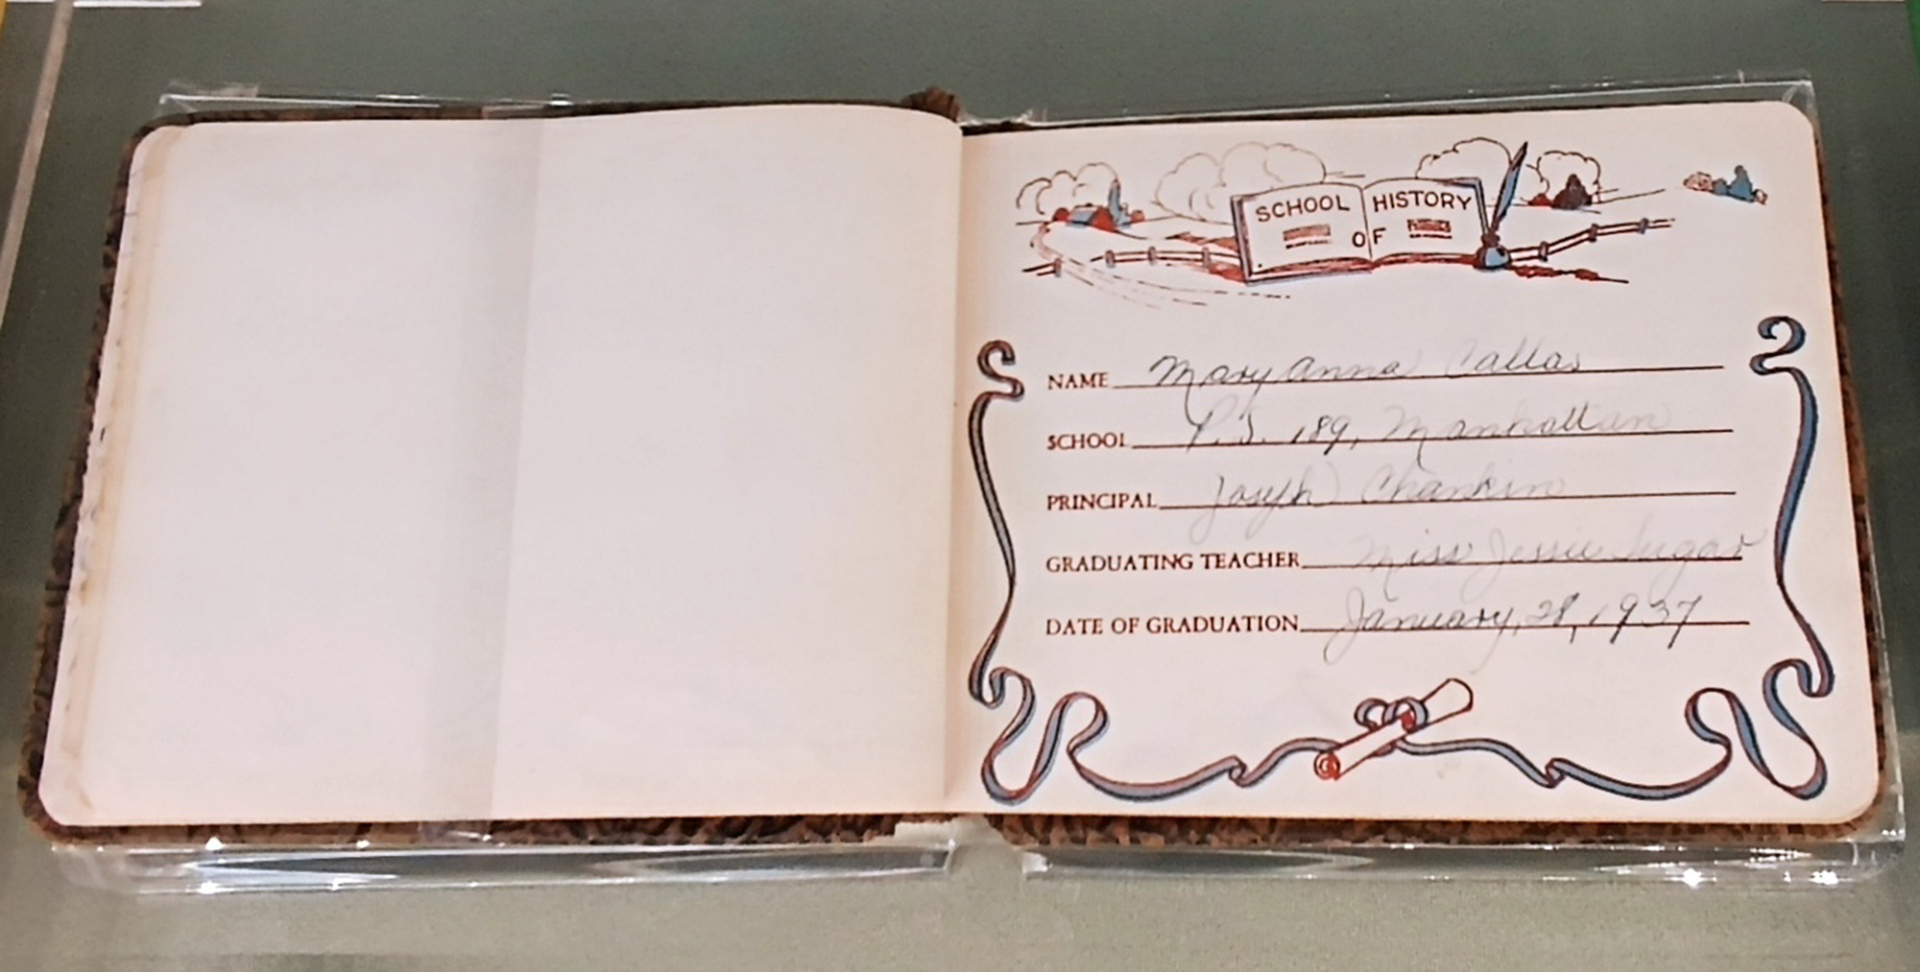 SCHOOL HISTORY
OF
NAME Mary Anna Callas
SCHOOL P.S. 189, Manhattan
PRINCIPAL Joseph Chankin
GRADUATING TEACHER Miss Jessie Sugar
DATE OF GRADUATION January, 28, 1937